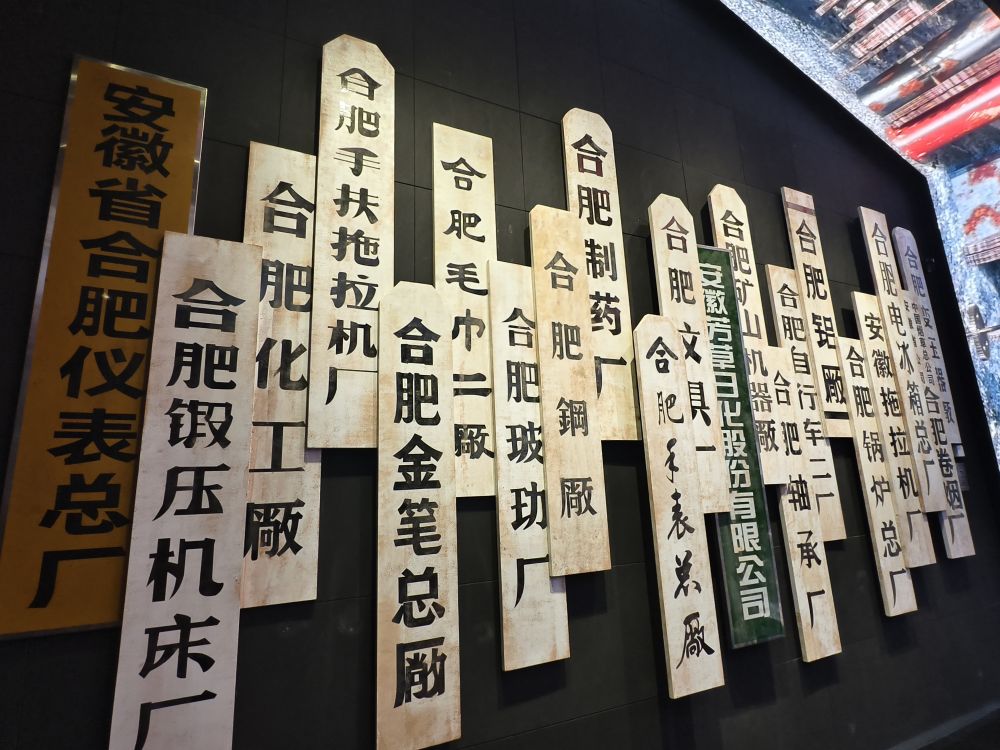 安徽省合肥仪表总厂
合肥锻压机床厂
合肥化工厰
合肥手扶拖拉机厂
合肥金笔总厰
合肥毛巾二厰
合肥玻功厂
合肥鋼厰
合肥制药厂
合肥手表总厰
合肥文具一
安徽芳草日化股份有限公司
合肥矿山机器厰
合肥轴承厂
合肥自行车二厂
合肥铝厰
合肥锅炉总厂
安徽拖拉机厂
合肥电冰箱总厂
合肥卷烟厂